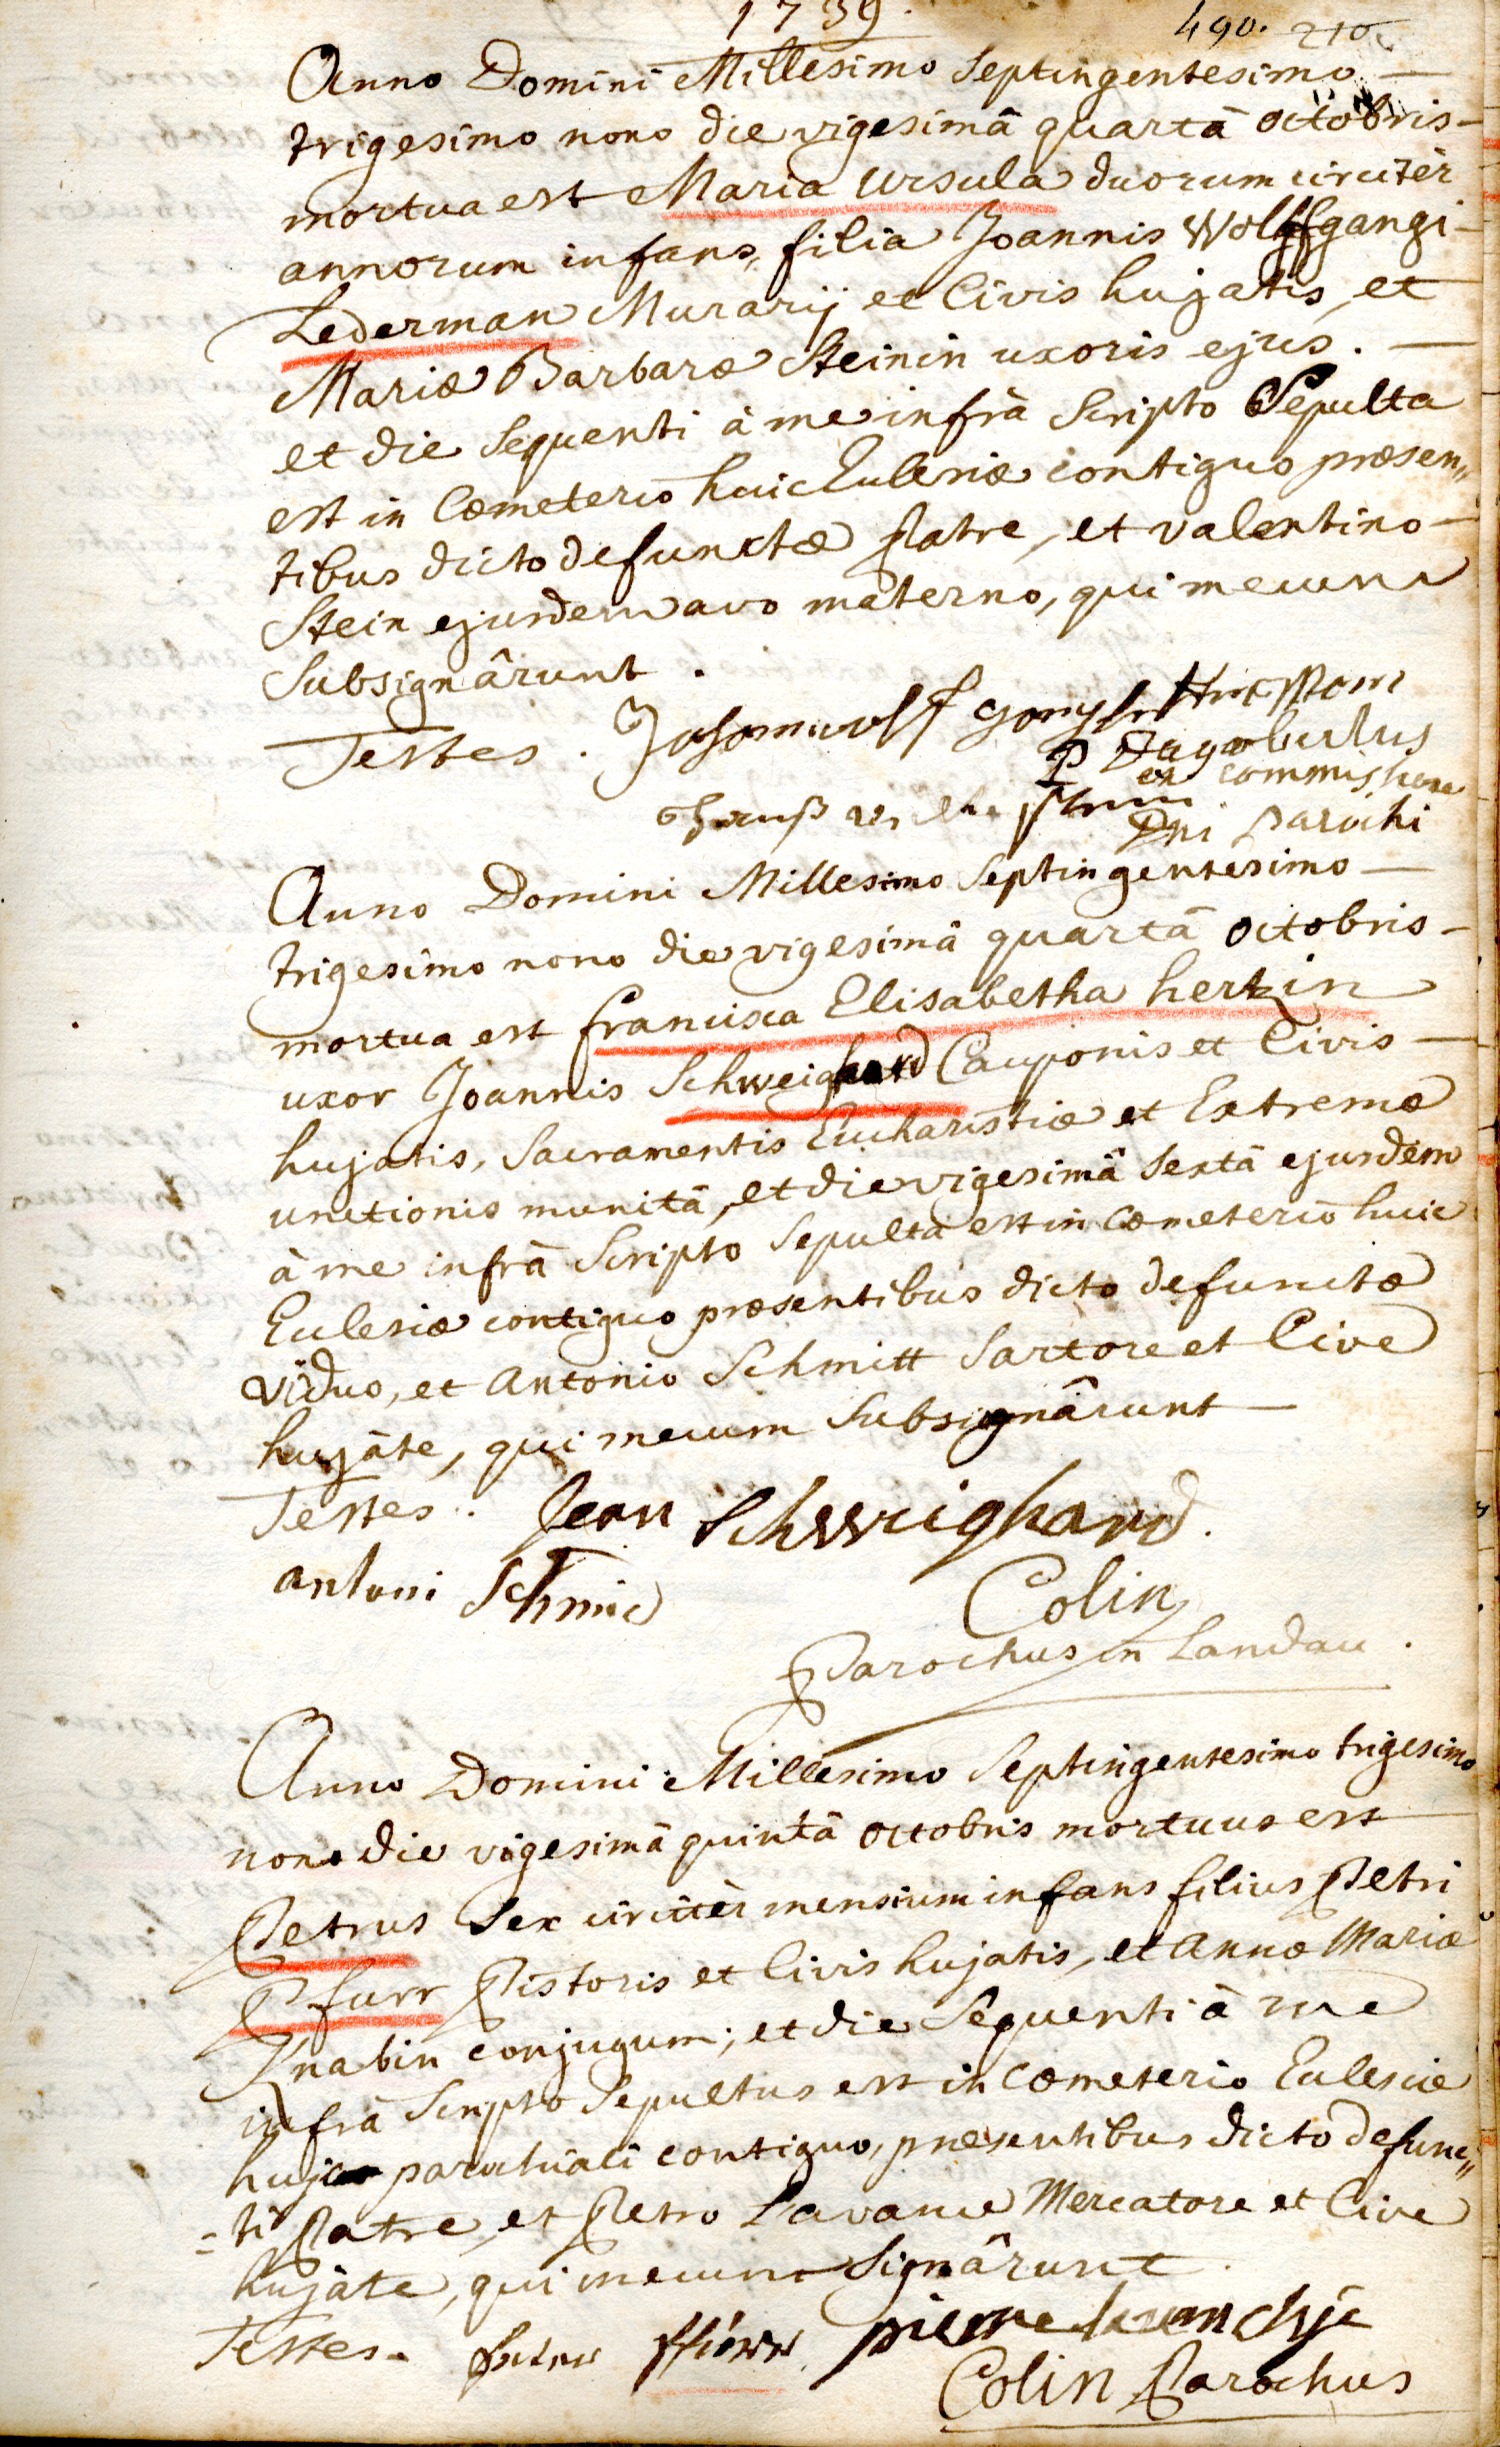 1739.
490. 210.
Anno Domini Millesimo Septingentesimo —
trigesimo nono die vigesimâ quartâ octobris —
mortua est Maria Ursula duorum circiter
annorum infans, filia Joannis Wolffgangi —
Lederman Murarij et Civis hujatis, et
Mariæ Barbaræ Steinin uxoris ejus. —
et die sequenti à me infrà scripto Sepulta
est in Cœmeterio huic Ecclesiæ contiguo præsen„
tibus dicto defunctæ Patre, et valentino —
Stein ejusdem avo materno, qui mecum
Subsignârunt.
Testes.
P Dagobertus
ex commissione
Dni Parochi
Anno Domini Millesimo Septingentesimo —
trigesimo nono die vigesimâ quartâ octobris —
mortua est francisca Elisabetha hertzin
uxor Joannis Schweighard Cauponis et Civis —
hujatis, Sacramentis Eucharistiæ et Extremæ
unctionis munitâ, et die vigesimâ sextâ ejusdem
à me infrà Scripto Sepulta est in cœmeterio huic
Ecclesiæ contiguo præsentibus dicto defunctæ
viduo, et antonio Schmitt Sartore et Cive
hujàte, qui mecum Subsignârunt —
Testes. Jean Schweighard.
antoni Schmid
Colin
Parochus in Landau.
Anno Domini Millesimo Septingentesimo trigesimo
nono die vigesimâ quintâ octobris mortuus est
Petrus Sex circiter mensium infans filius Petri
Pfurr Pistoris et Civis hujatis, et annæ Mariæ
Knabin conjugum; et die Sequenti à me
infrà Scripto Sepultus est in Cœmeterio Ecclesiæ
parochiali contiguo, præsentibus dicto defunc„
=ti Patre, et Petro Lavance Mercatore et Cive
hujàte, qui mecum Signârunt.
Testes. pierre
Colin Parochus